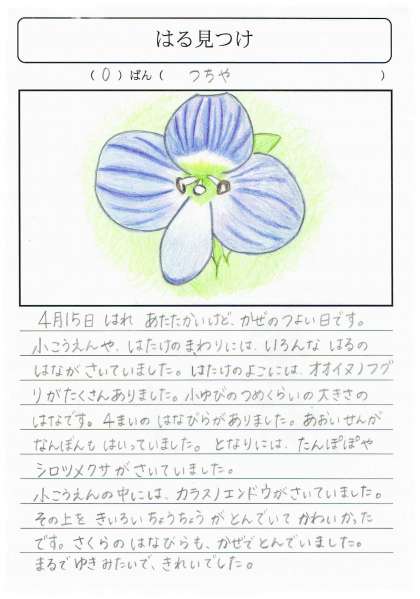 はる見つけ
（０）ばん（ つちや ）
4月15日 はれ あたたかいけど、かぜのつよい日です。
小こうえんや、はたけのまわりには、いろんな はるの
はながさいていました。はたけのよこには、オオイヌノフグ
リがたくさんありました。小ゆびのつめくらいの大きさの
はなです。4まいの はなびらがありました。あおいせんが
なんぼんも はいっていました。 となりには、たんぽぽや
シロツメクサがさいていました。
小こうえんの中にしは、カラスノエンドウがさいていました。
その上を きいろいちょうちょうが とんでいて かわいかった
です。さくらの はなびらも、かぜでとんでいました。
まるで ゆきみたいで、きれいでした。